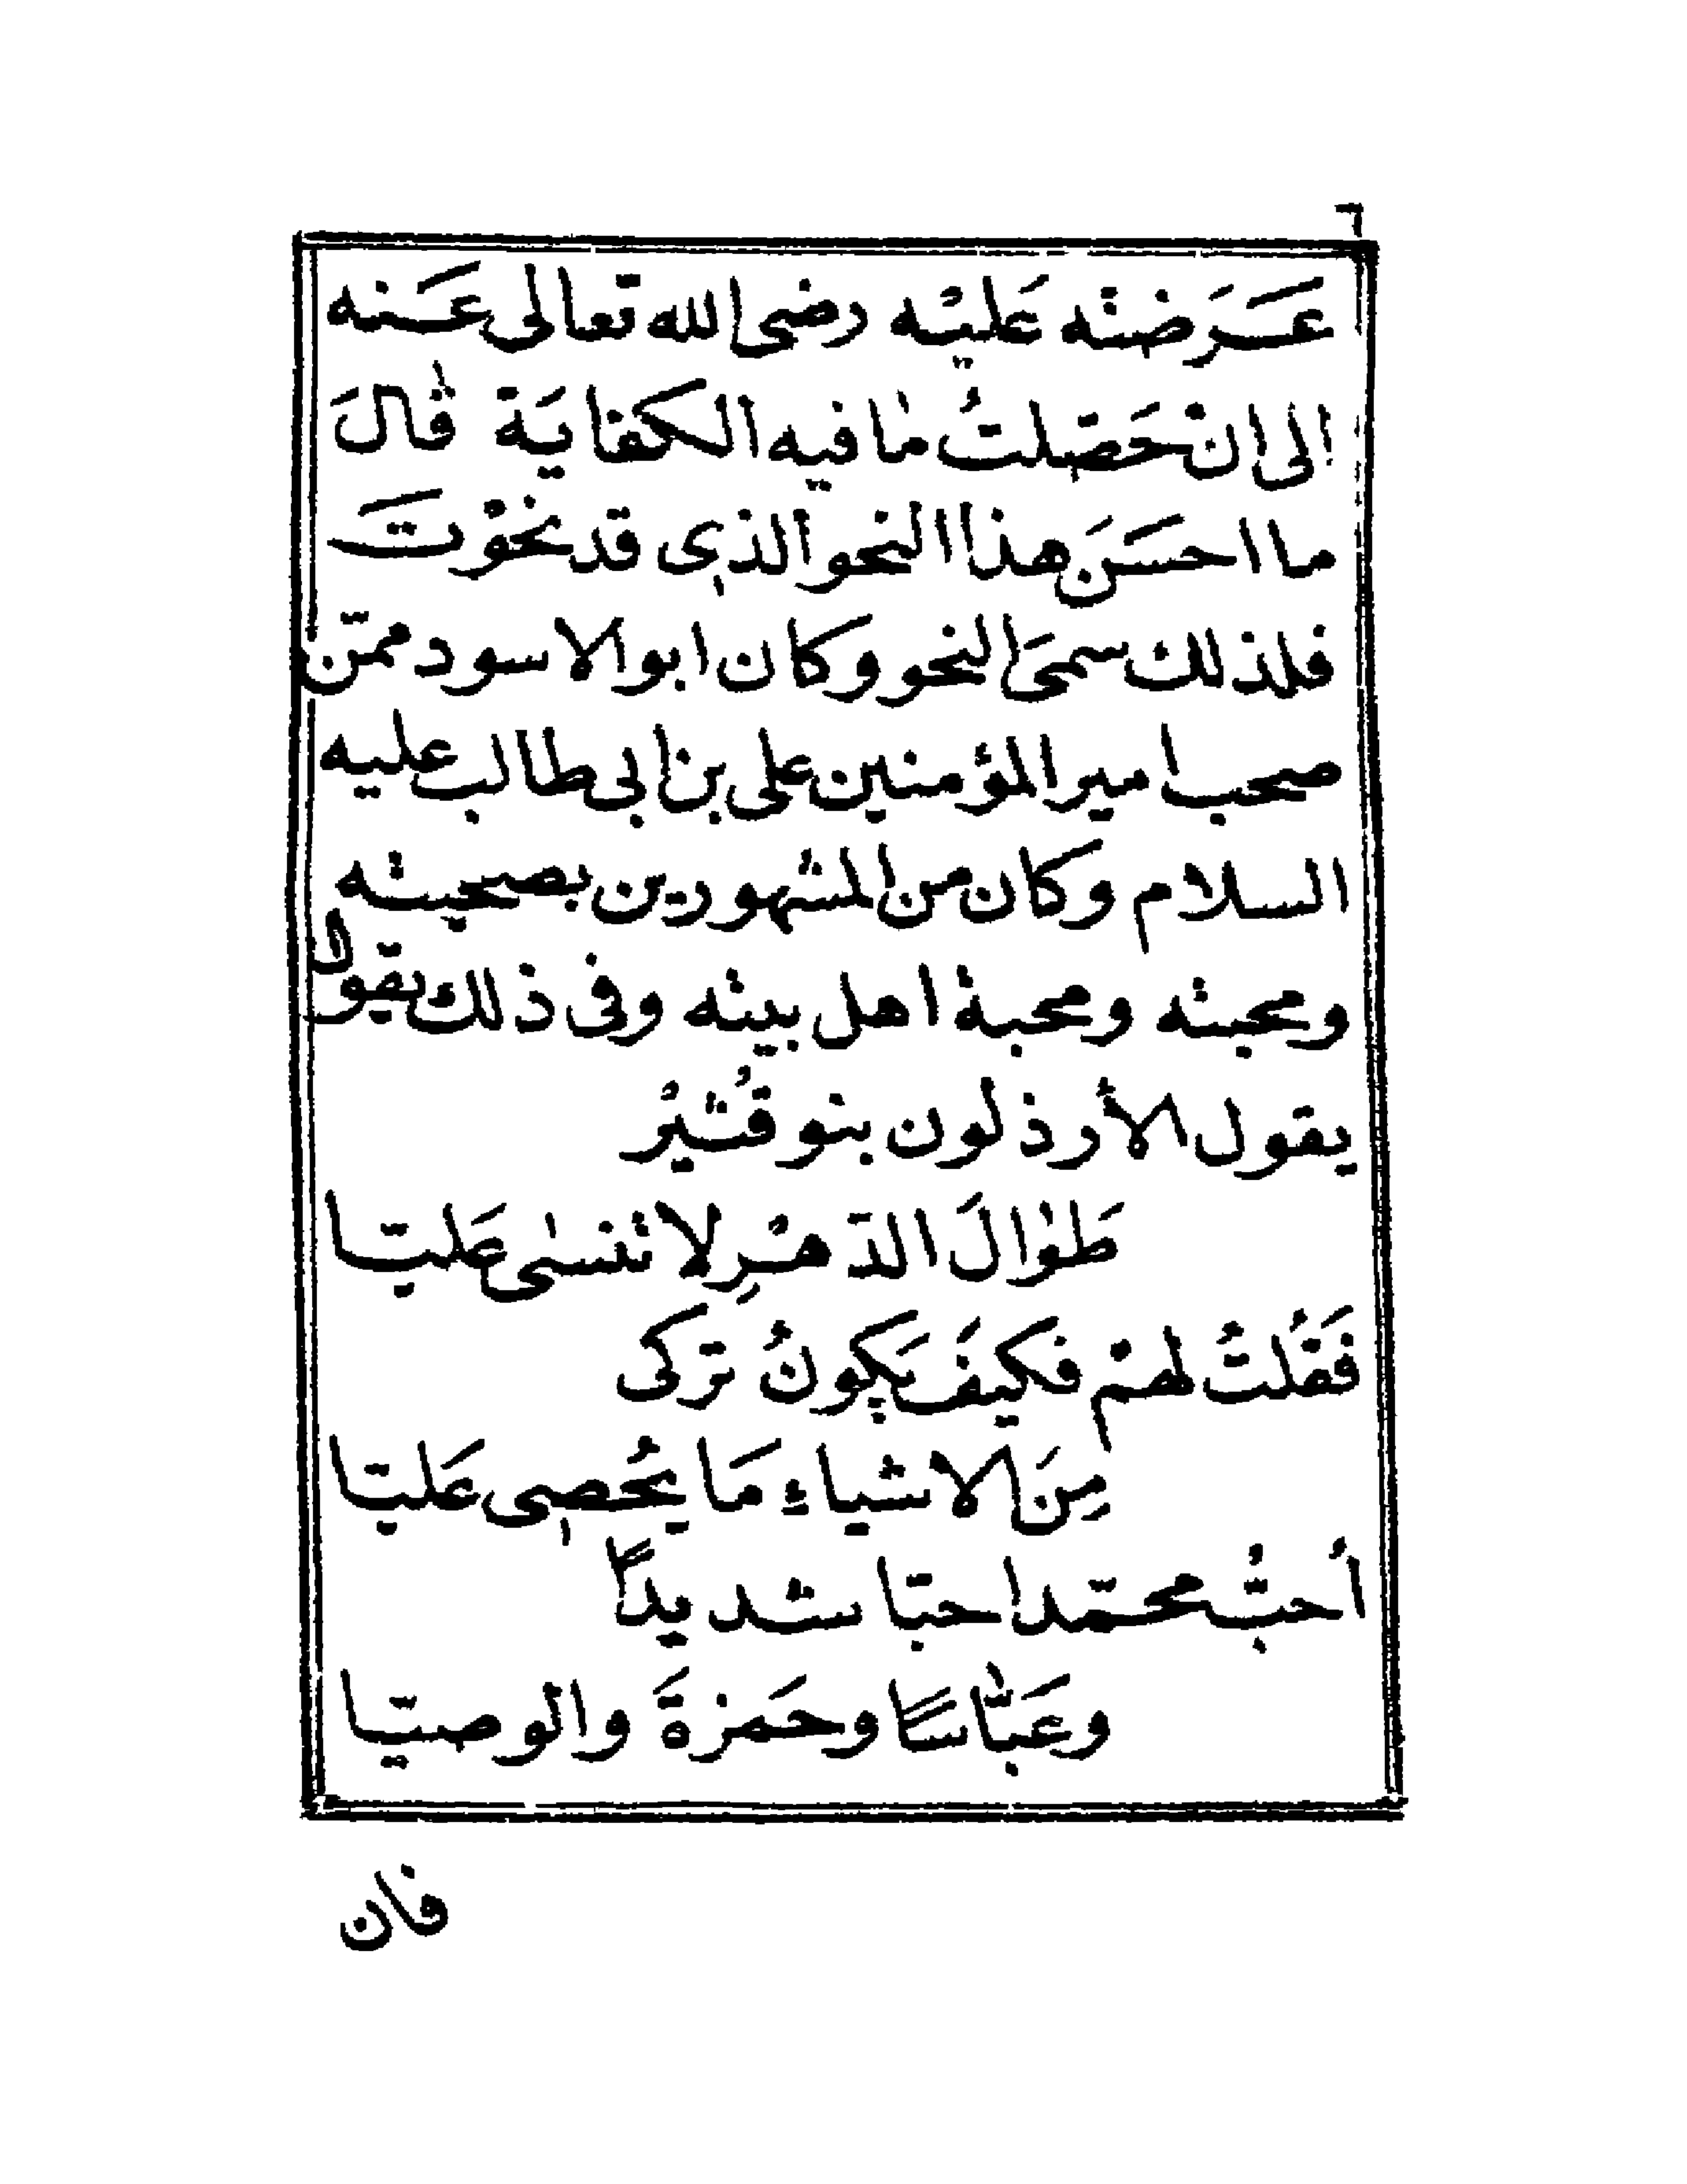 ٦
عَرَضته عَليْه رضى الله تعالى عَنه
الى ان حَصّلتُ ما فيه الكفايَة قالَ
ما احسَنَ هذا النحو الذى قد نحَوْتَ
فلذلك سمىَ النحو وكان ابو الاسود ممّن
صحب امير المؤمنين على بن ابى طالب عليه
السلام وكان من المشهورين بصحبته
ومحبته ومحبة اهل بيته وفى ذلك يقول
يقول الأرذلون بنو قُشَيْرُ
طَوالَ الدّهْرِ لا تنسى عَليّا
فَقُلتُ لهمْ فكيفَ يَكونُ تركى
مِنَ الاشياءِ مَا يُحْصى عَليّا
أُحبُّ محمّدا حبّا شديدًا
وعَبّاسًا وحَمزةَ والوصيّا
فان